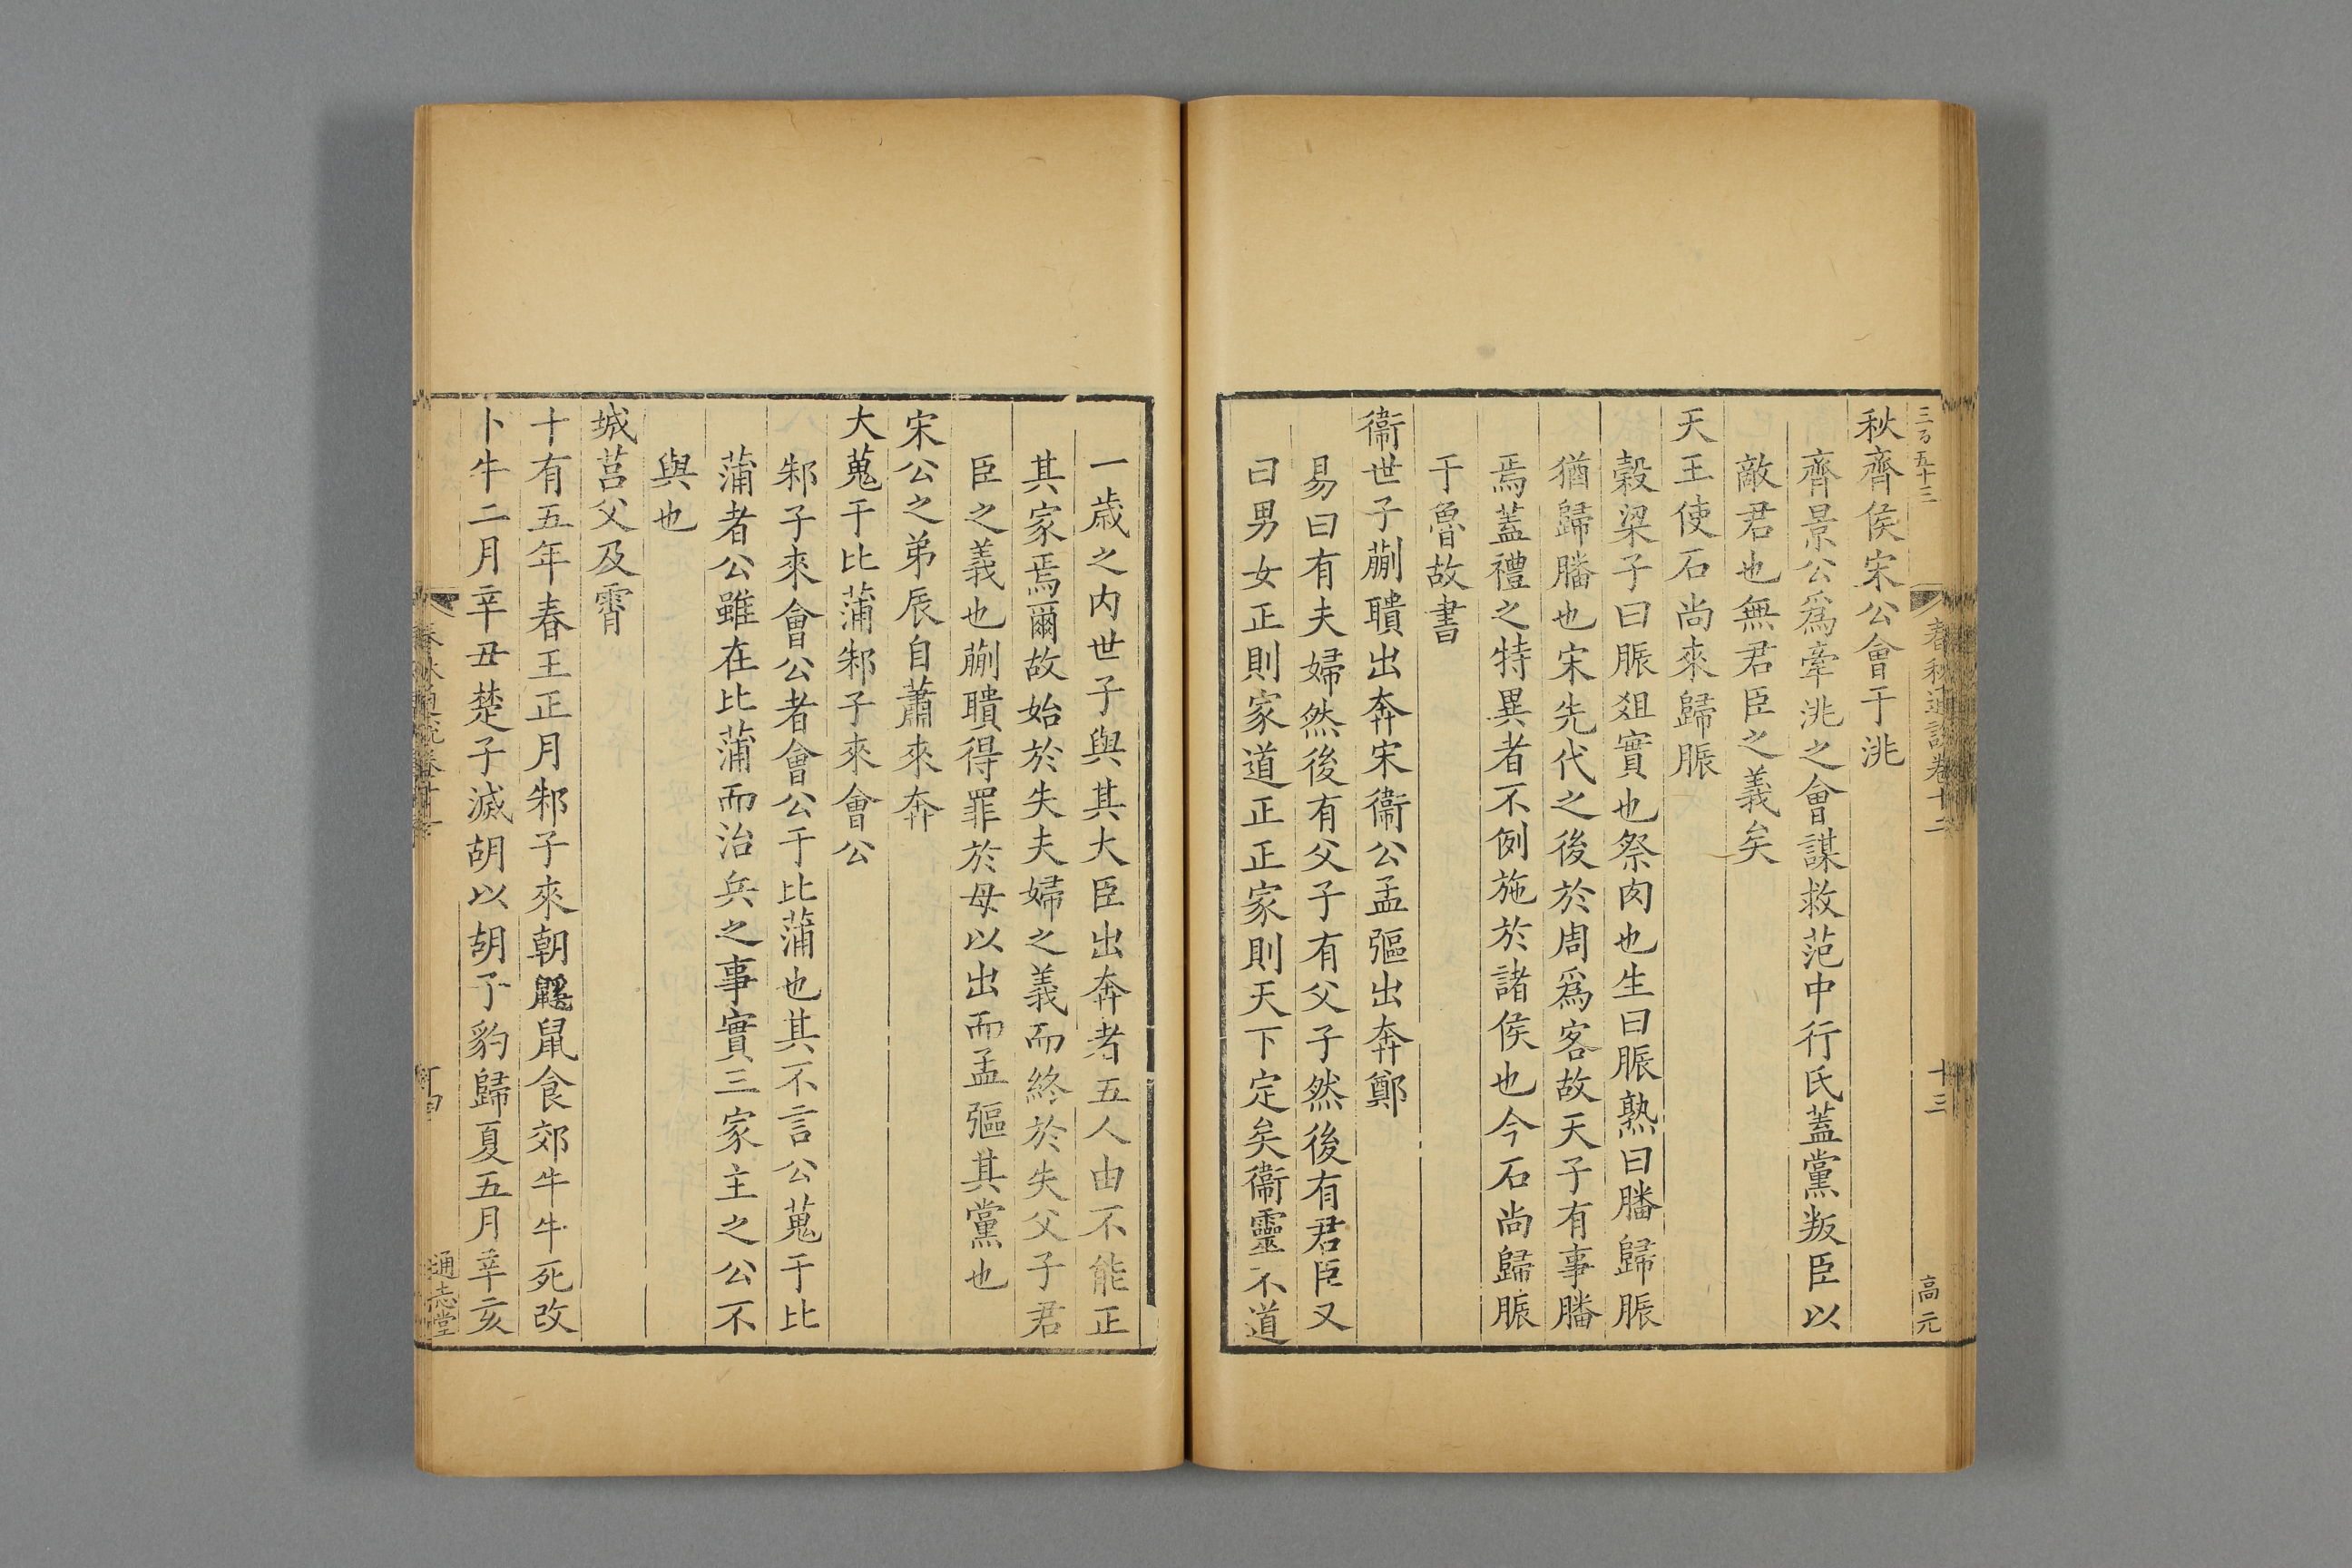 三百五十三
春秋通說卷十二
十三
高元
秋齊侯宋公會于洮
齊景公爲牽洮之會謀救范中行氏蓋黨叛臣以
敵君也無君臣之義矣
天王使石尚來歸脤
穀梁子曰脤俎實也祭肉也生曰脤熟曰膰歸脤
猶歸膰也宋先代之後於周爲客故天子有事膰
焉蓋禮之特異者不例施於諸侯也今石尚歸脤
于魯故書
衞世子蒯聵出奔宋衞公孟彄出奔鄭
易曰有夫婦然後有父子有父子然後有君臣又
曰男女正則家道正正家則天下定矣衞靈不道
一歲之内世子與其大臣出奔者五人由不能正
其家焉爾故始於失夫婦之義而終於失父子君
臣之義也蒯聵得罪於母以出而孟彄其黨也
宋公之弟辰自蕭來奔
大蒐于比蒲邾子來會公
邾子來會公者會公于比蒲也其不言公蒐于比
蒲者公雖在比蒲而治兵之事實三家主之公不
與也
城莒父及霄
十有五年春王正月邾子來朝鼷鼠食郊牛牛死改
卜牛二月辛丑楚子滅胡以胡子豹歸夏五月辛亥
通志堂